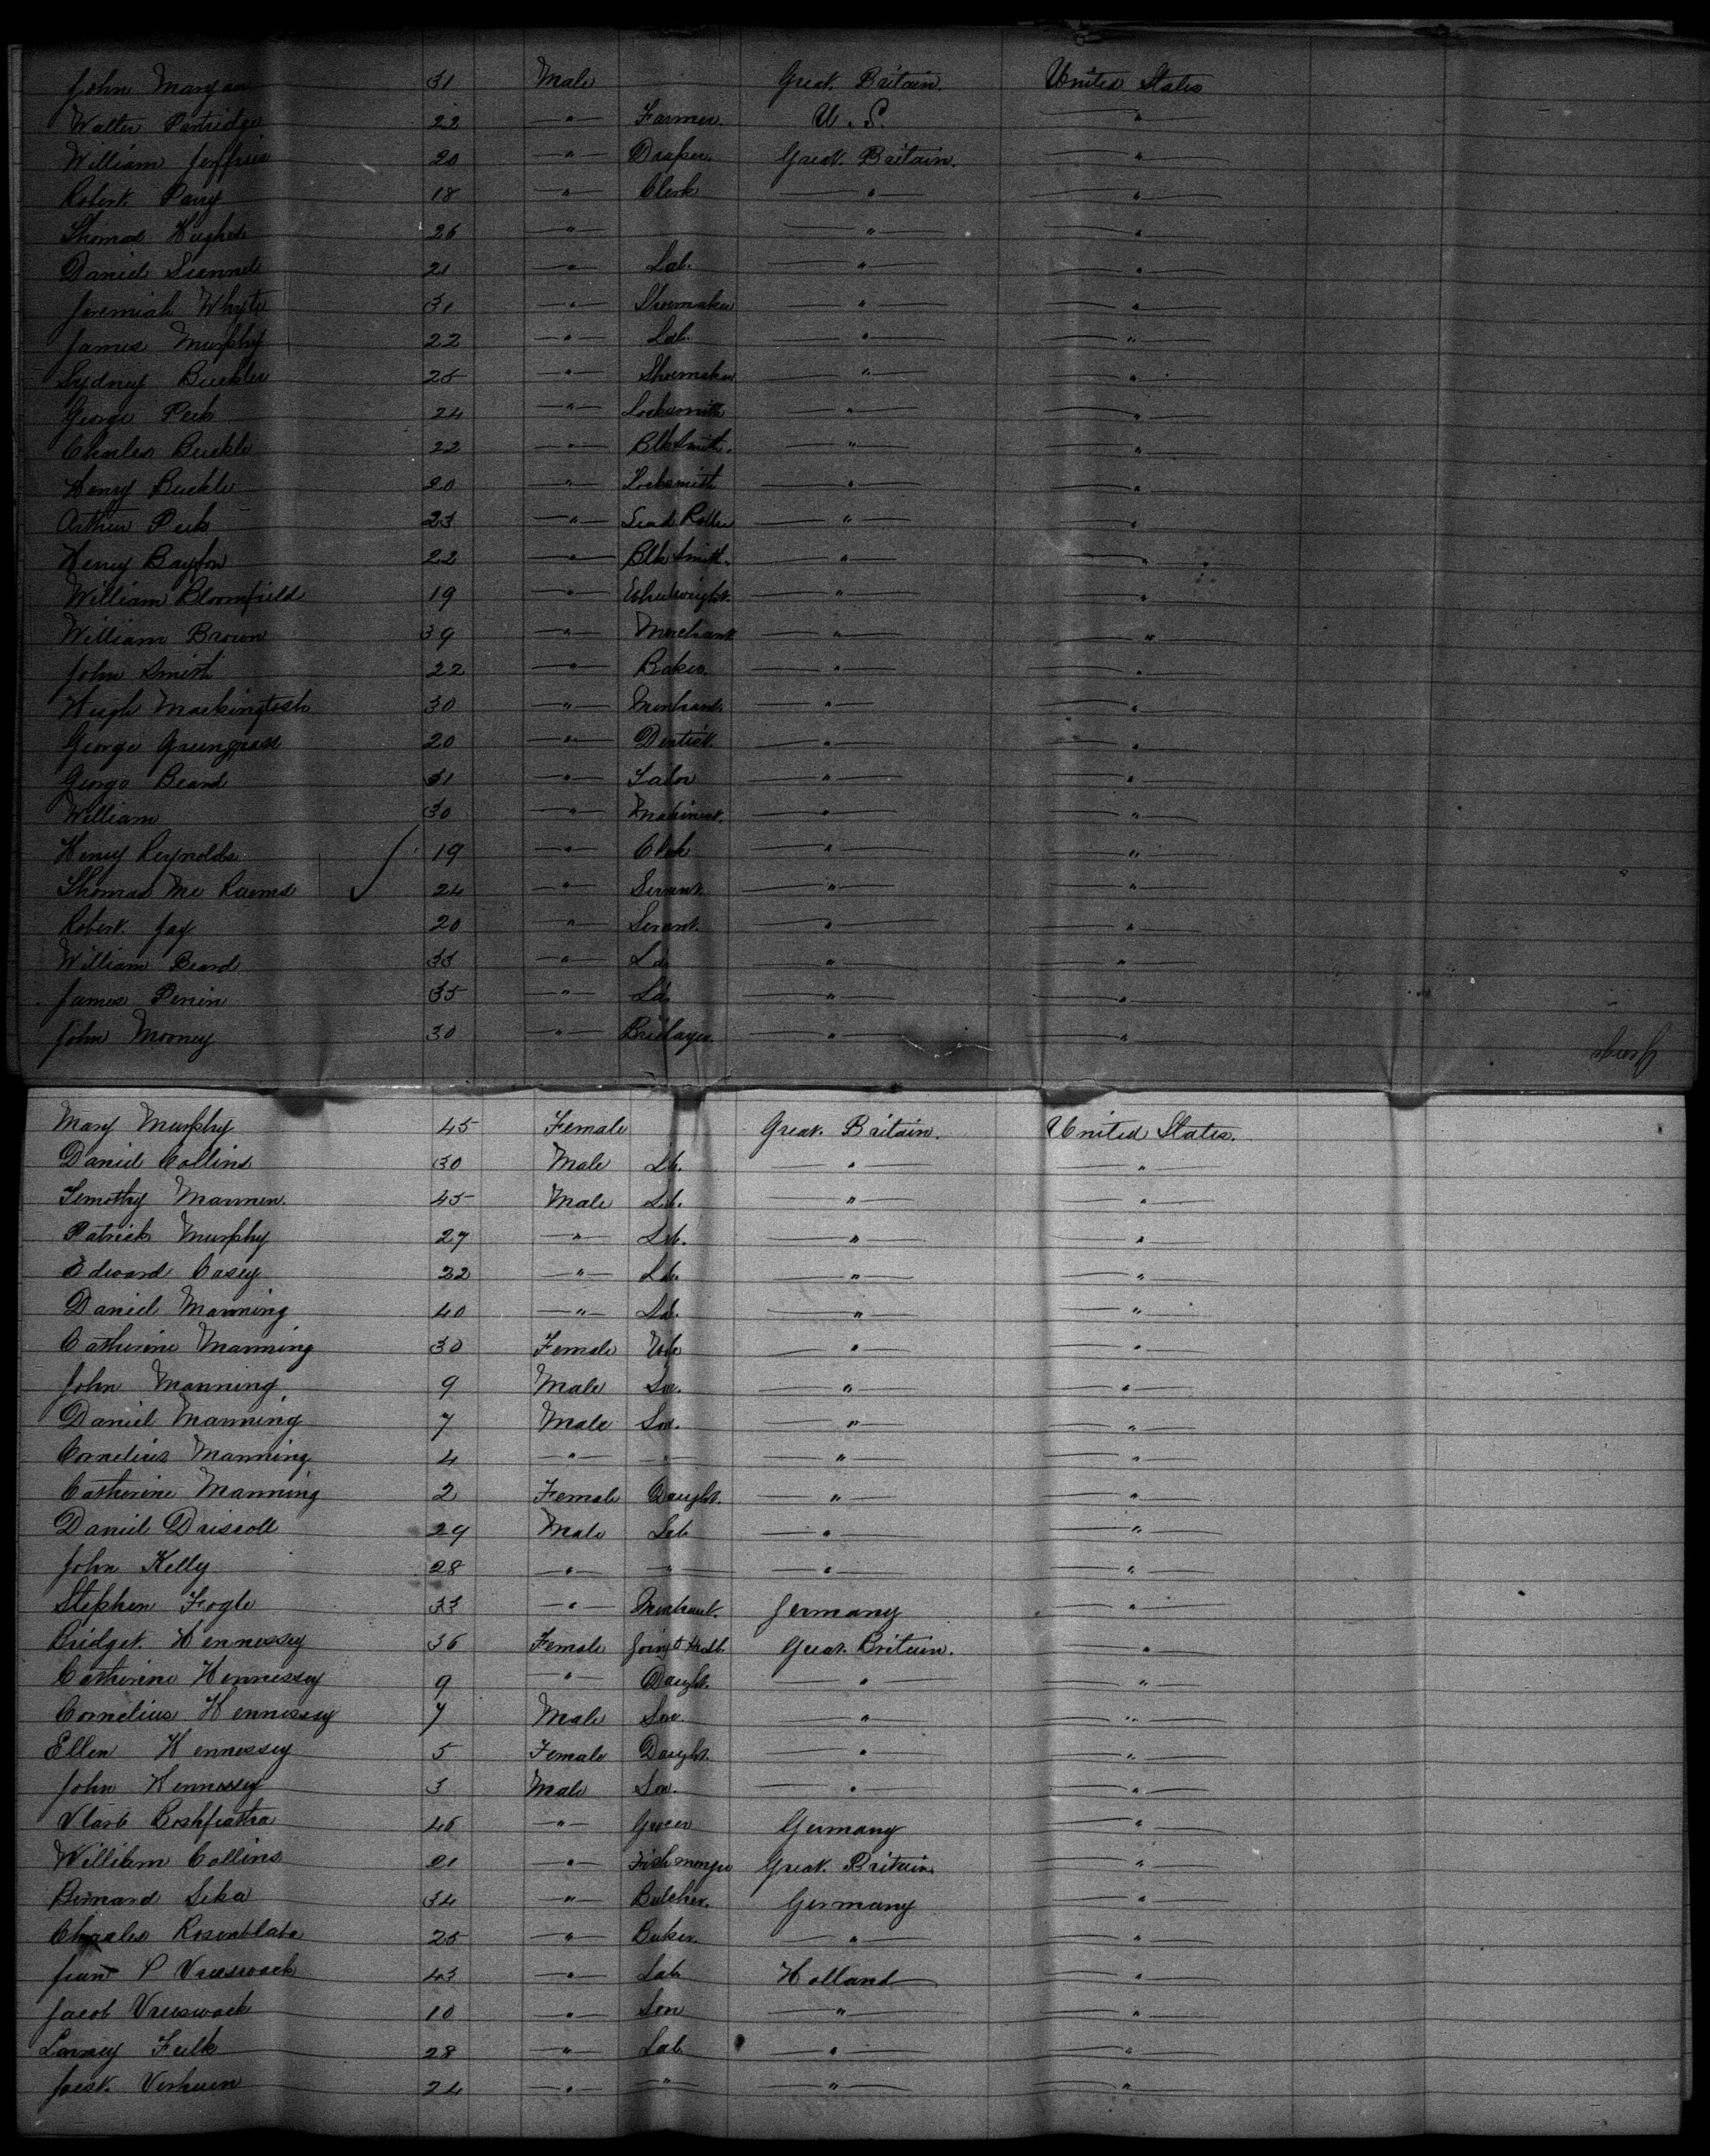 John Maryan 31 Male Great. Britain. United States
Walter Partridge 22 " Farmer. U. S. "
William Jeffries 20 " Draper. Great. Britain. "
Robert. Parry 18 " Clerk " "
Thomas Hughes 26 " " "
Daniel Scannel 21 " Lab. " "
Jeremiah Whyte 31 " Shoemaker " "
James Murphy 22 " Lab. " "
Sydney Buckler 25 " Shoemaker " "
George Peck 24 " Locksmith " "
Charles Buckle 22 " Blk Smith. " "
Henry Buckle 20 " Locksmith " "
Arthur Peck 23 " Lead Roller " "
Henry Bayfor 22 " Blk Smith. " "
William Bloomfield 19 " Whelwright. " "
William Brown 39 " Merchant " "
John Smith 22 " Baker. " "
Hugh Mackingtosh 30 " Merchant " "
George Greengrass 20 " Dentist. " "
George Beard 31 " Tailor " "
William 30 " Machinist. " "
Henry Reynolds 19 " Clerk " "
Thomas Mc 24 " Servant. " "
Robert. Jay 20 " Servant. " "
William Beard 33 " La " "
James Perrin 35 " La. " "
John Mooney 30 " Bricklayer. " "
Mary Murphy 45 Female Great. Britain. United States.
Daniel Collins 30 Male Lb. " "
Timothy Marmen. 45 Male Lb. " "
Patrick Murphy 27 " Lb. " "
Edward Casey 22 " Lb. " "
Daniel Manning 40 " Lb. " "
Catherine Manning 30 Female Wife " "
John Manning 9 Male Son. " "
Daniel Manning 7 Male Son. " "
Cornelius Manning 4 " " " "
Catherine Manning 2 Female Daught. " "
Daniel Driscoll 29 Male Lab " "
John Kelly 28 " " " "
Stephen Fogle 33 " Merchant. Germany "
Bridget. Hennessey 36 Female Going to Husb. Great. Britain. "
Catherine Hennessey 9 " Daught. " "
Cornelius Hennessey 7 Male Son. " "
Ellen Hennessey 5 Female Daught. " "
John Hennessey 3 Male Son. " "
46 " Grocer Germany "
William Collins 21 " Fishmonger Great. Britain. "
Bernard Leka 34 " Butcher. Germany "
Charles Rosenblata 25 " Baker. " "
P Vreeswack 43 " Lab Holland "
Jacob Vreeswack 10 " Son " "
Fulk 28 " Lab. " "
Joest. Verhuen 24 " " " "